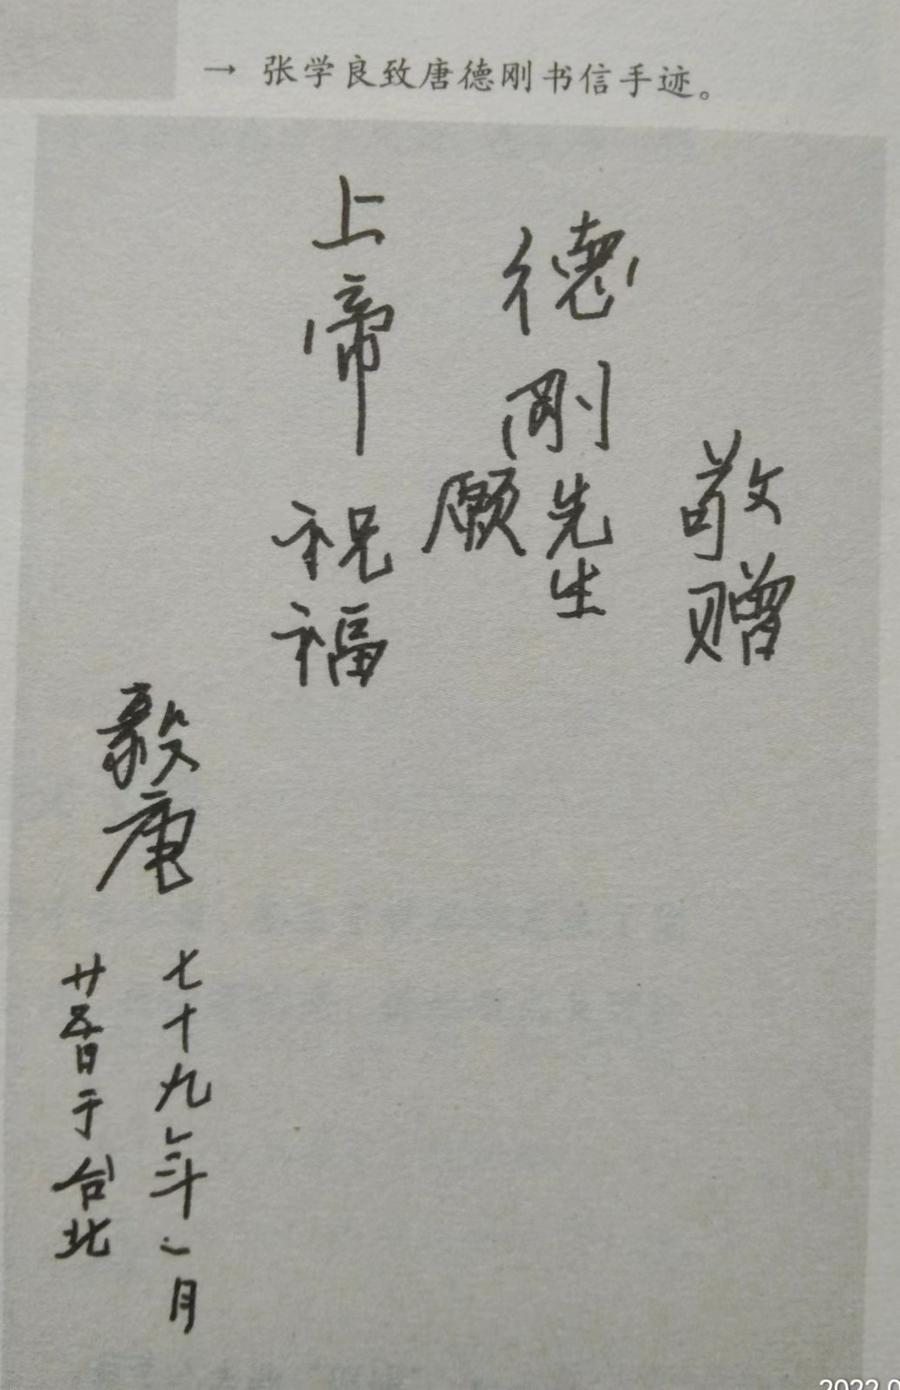 → 张学良致唐德刚书信手迹。
敬赠
德剛先生
願
上帝祝福
毅庵
七十九年二月
廿五日于台北